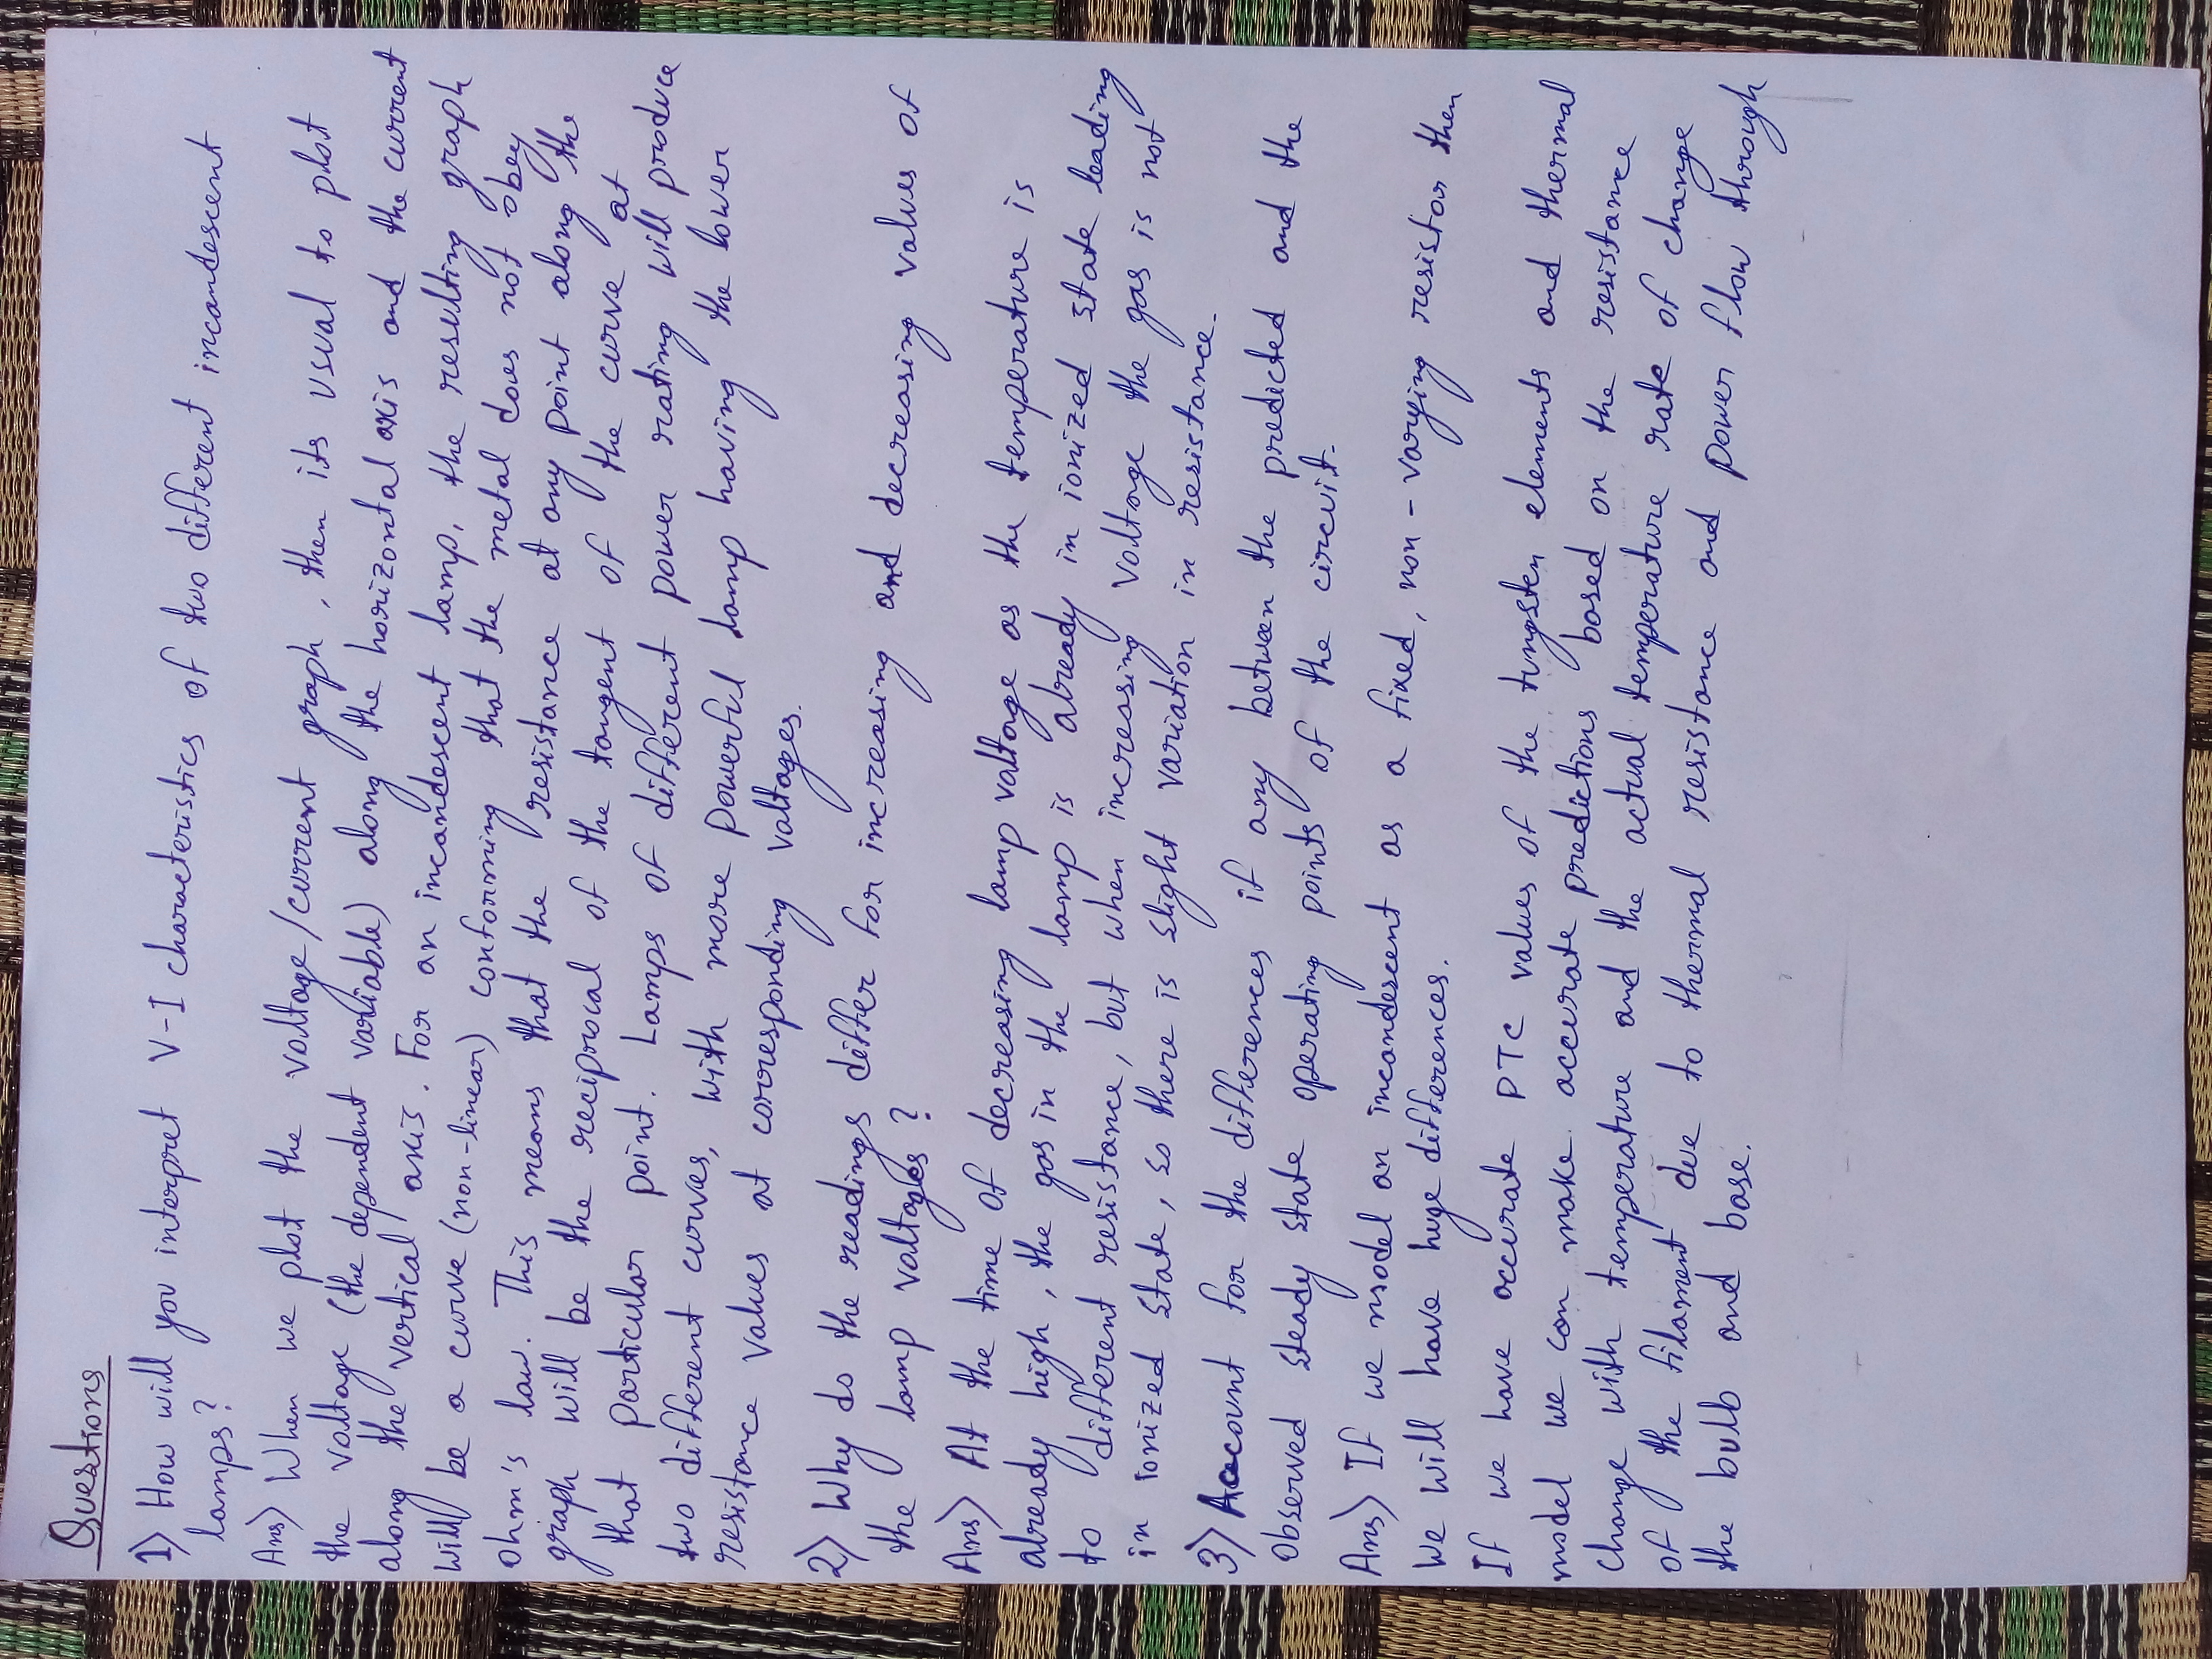 Questions
1) How will you interpret V-I characteristics of two different incandescent
lamps?
Ans) When we plot the voltage/current graph, then its usual to plot
the voltage (the dependent variable) along the horizontal axis and the current
along the vertical axis. For an incandescent lamp, the resulting graph
will be a curve (non-linear) conforming that the metal does not obey
ohm's law. This means that the resistance at any point along the
graph will be the reciprocal of the tangent of the curve at
that particular point. Lamps of different power rating will produce
two different curves, with more powerful lamp having the lower
resistance values at corresponding voltages.
2) Why do the readings differ for increasing and decreasing values of
the lamp voltages?
Ans) At the time of decreasing lamp voltage as the temperature is
already high, the gas in the lamp is already in ionized state leading
to different resistance, but when increasing voltage the gas is not
in ionized state, so there is slight variation in resistance.
3) Account for the differences if any between the predicted and the
observed steady state operating points of the circuit.
Ans) If we model an incandescent as a fixed, non-varying resistor then
we will have huge differences.
If we have accurate PTC values of the tungsten elements and thermal
model we can make accurate predictions based on the resistance
change with temperature and the actual temperature rate of change
of the filament due to thermal resistance and power flow through
the bulb and base.